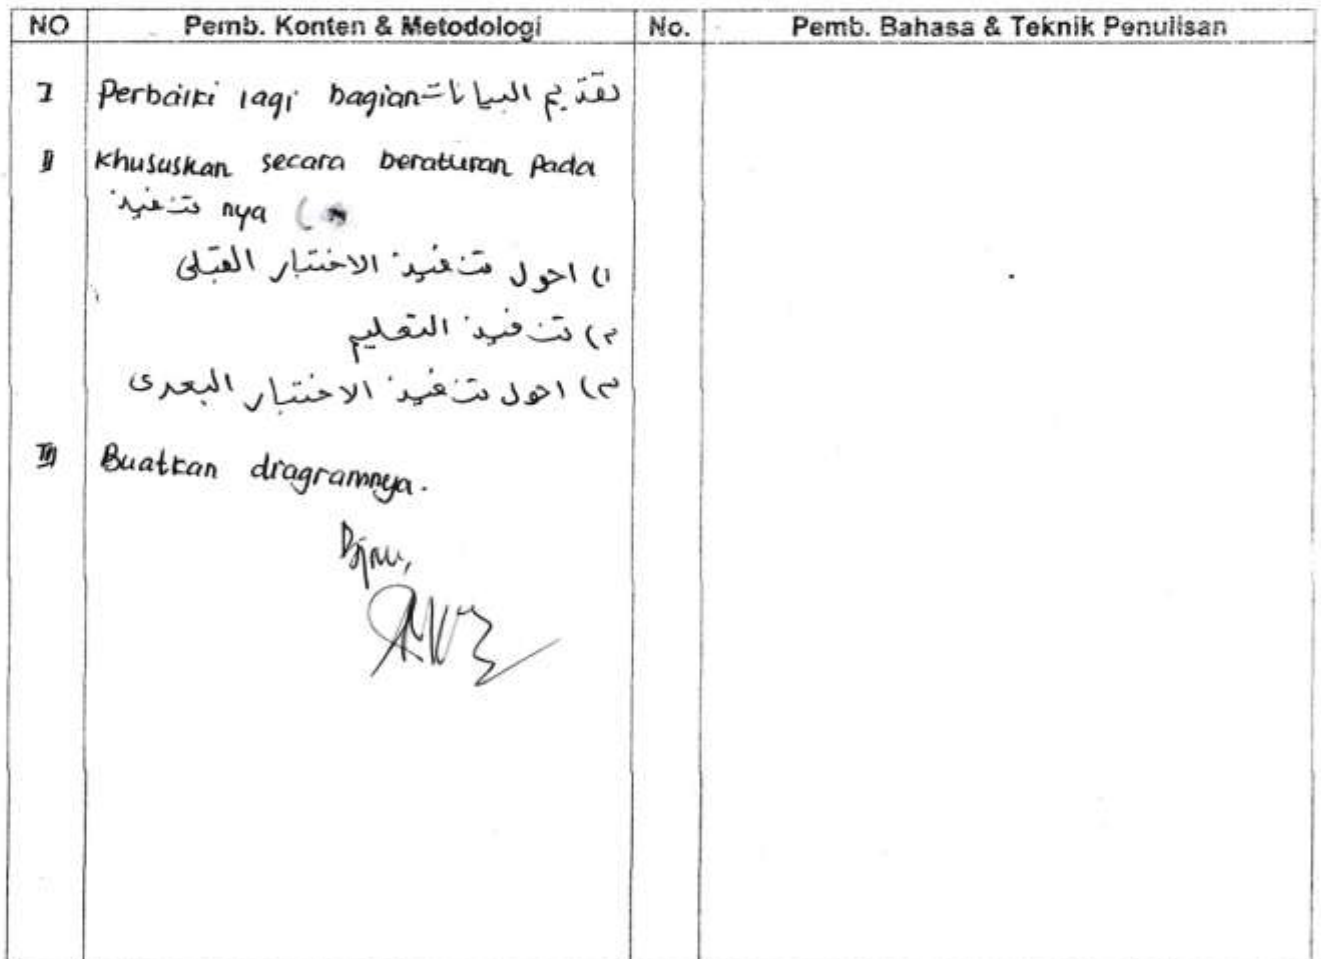 NO Pemb. Konten & Metodologi No. Pemb. Bahasa & Teknik Penulisan
I Perbaiki lagi bagian تقديم البيانات
II Khususkan secara beraturan Pada
تنفيذ nya
١) احول تنفيذ الاختبار القبلى
٢) تنفيذ التعليم
٣) احول تنفيذ الاختبار البعدى
III Buatkan diagramnya.